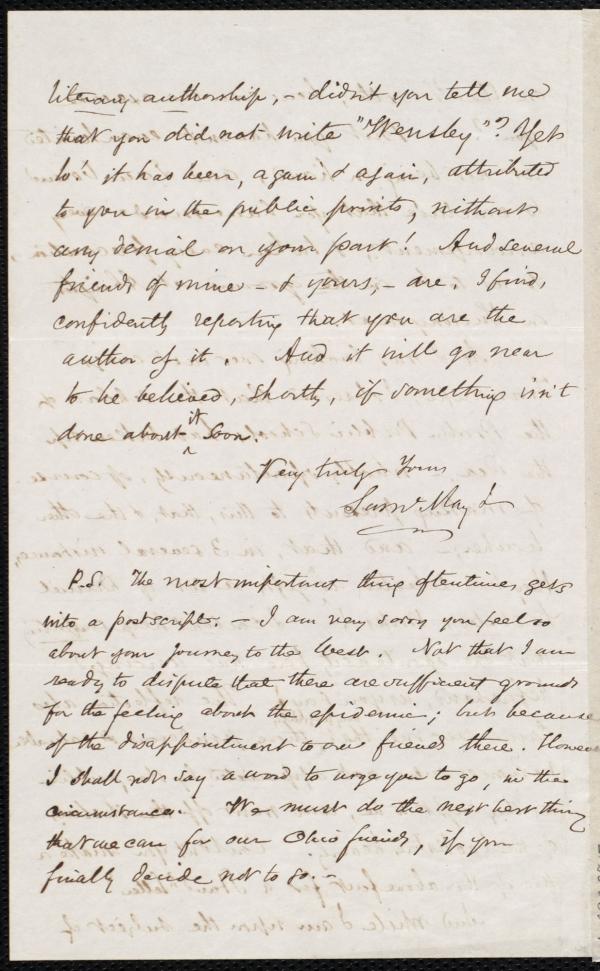 literary authorship, - didn't you tell me
that you did not write "Wensley"? Yet
lo! it has been, again & again, attributed
to you in the public prints, without
any denial on your part! And several
friends of mine - & yours, - are, I find,
confidently reporting that you are the
author of it. And it will go near
to be believed, shortly, if something isn't
done about it soon.
Very truly Yours
Saml. May Jr
P.S. The most important thing oftentimes gets
into a postscript. - I am very sorry you feel so
about your journey to the West. Not that I am
ready to dispute that there are sufficient grounds
for the feeling about the epidemic; but because
of the disappointment to our friends there. However
I shall not say a word to urge you to go, in the
circumstances. We must do the next best thing
that we can for our Ohio friends, if you
finally decide not to go. -